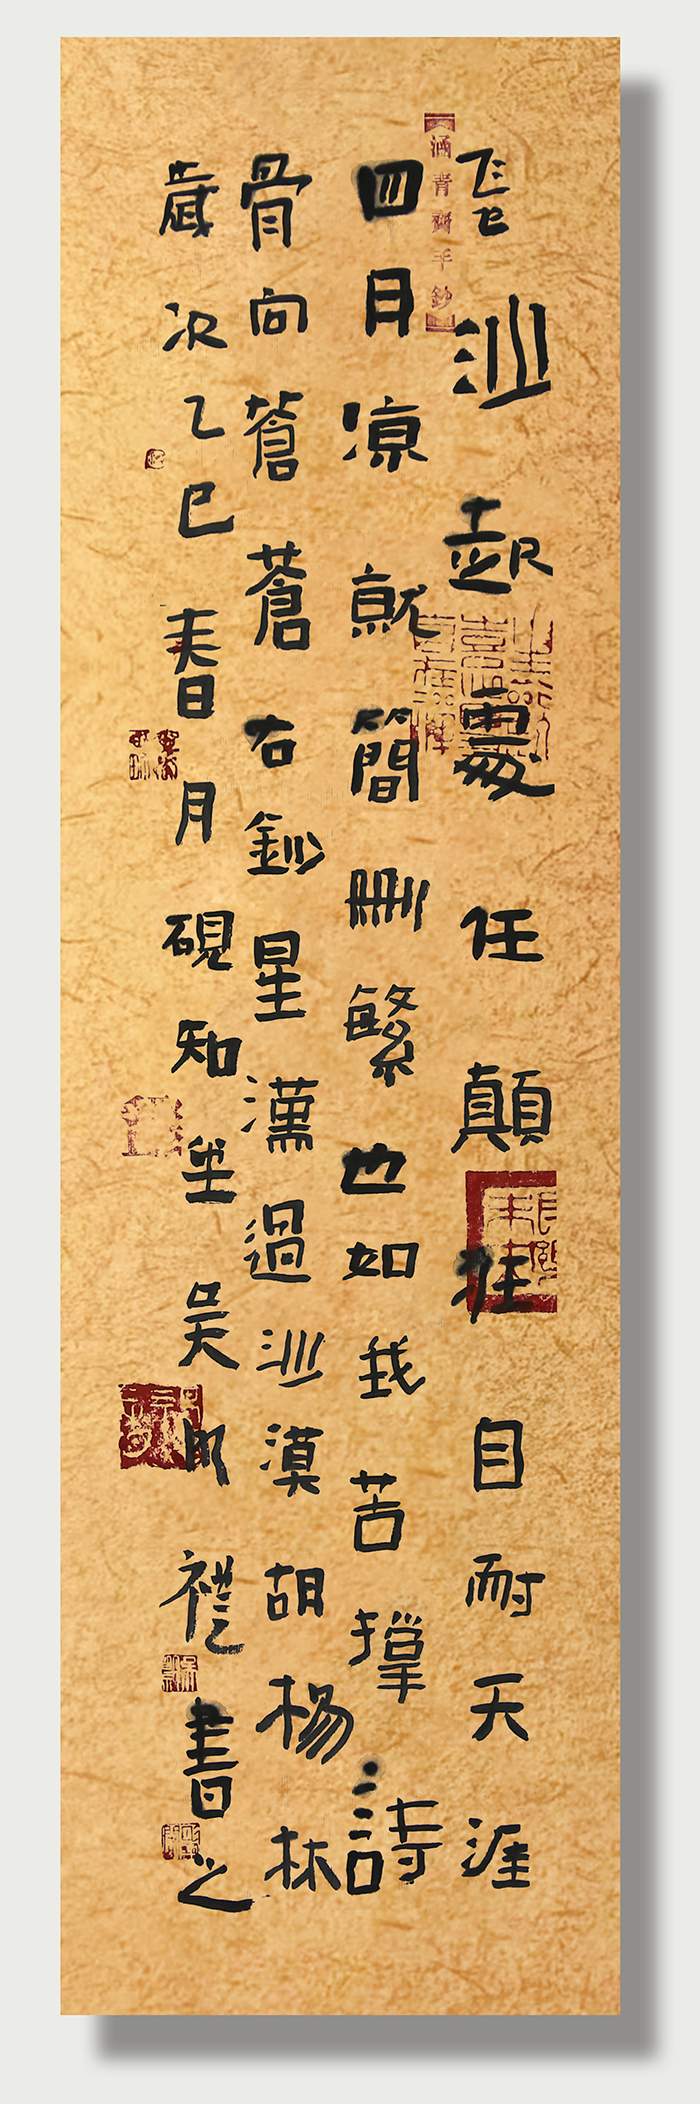 涵青齋手鈔
飛沙起處任顛狂自耐天涯
四月凉就簡刪繁也如我苦撑詩
骨向蒼蒼右鈔星漢過沙漠胡楊林
歲次乙巳春月硯知坐吴書之